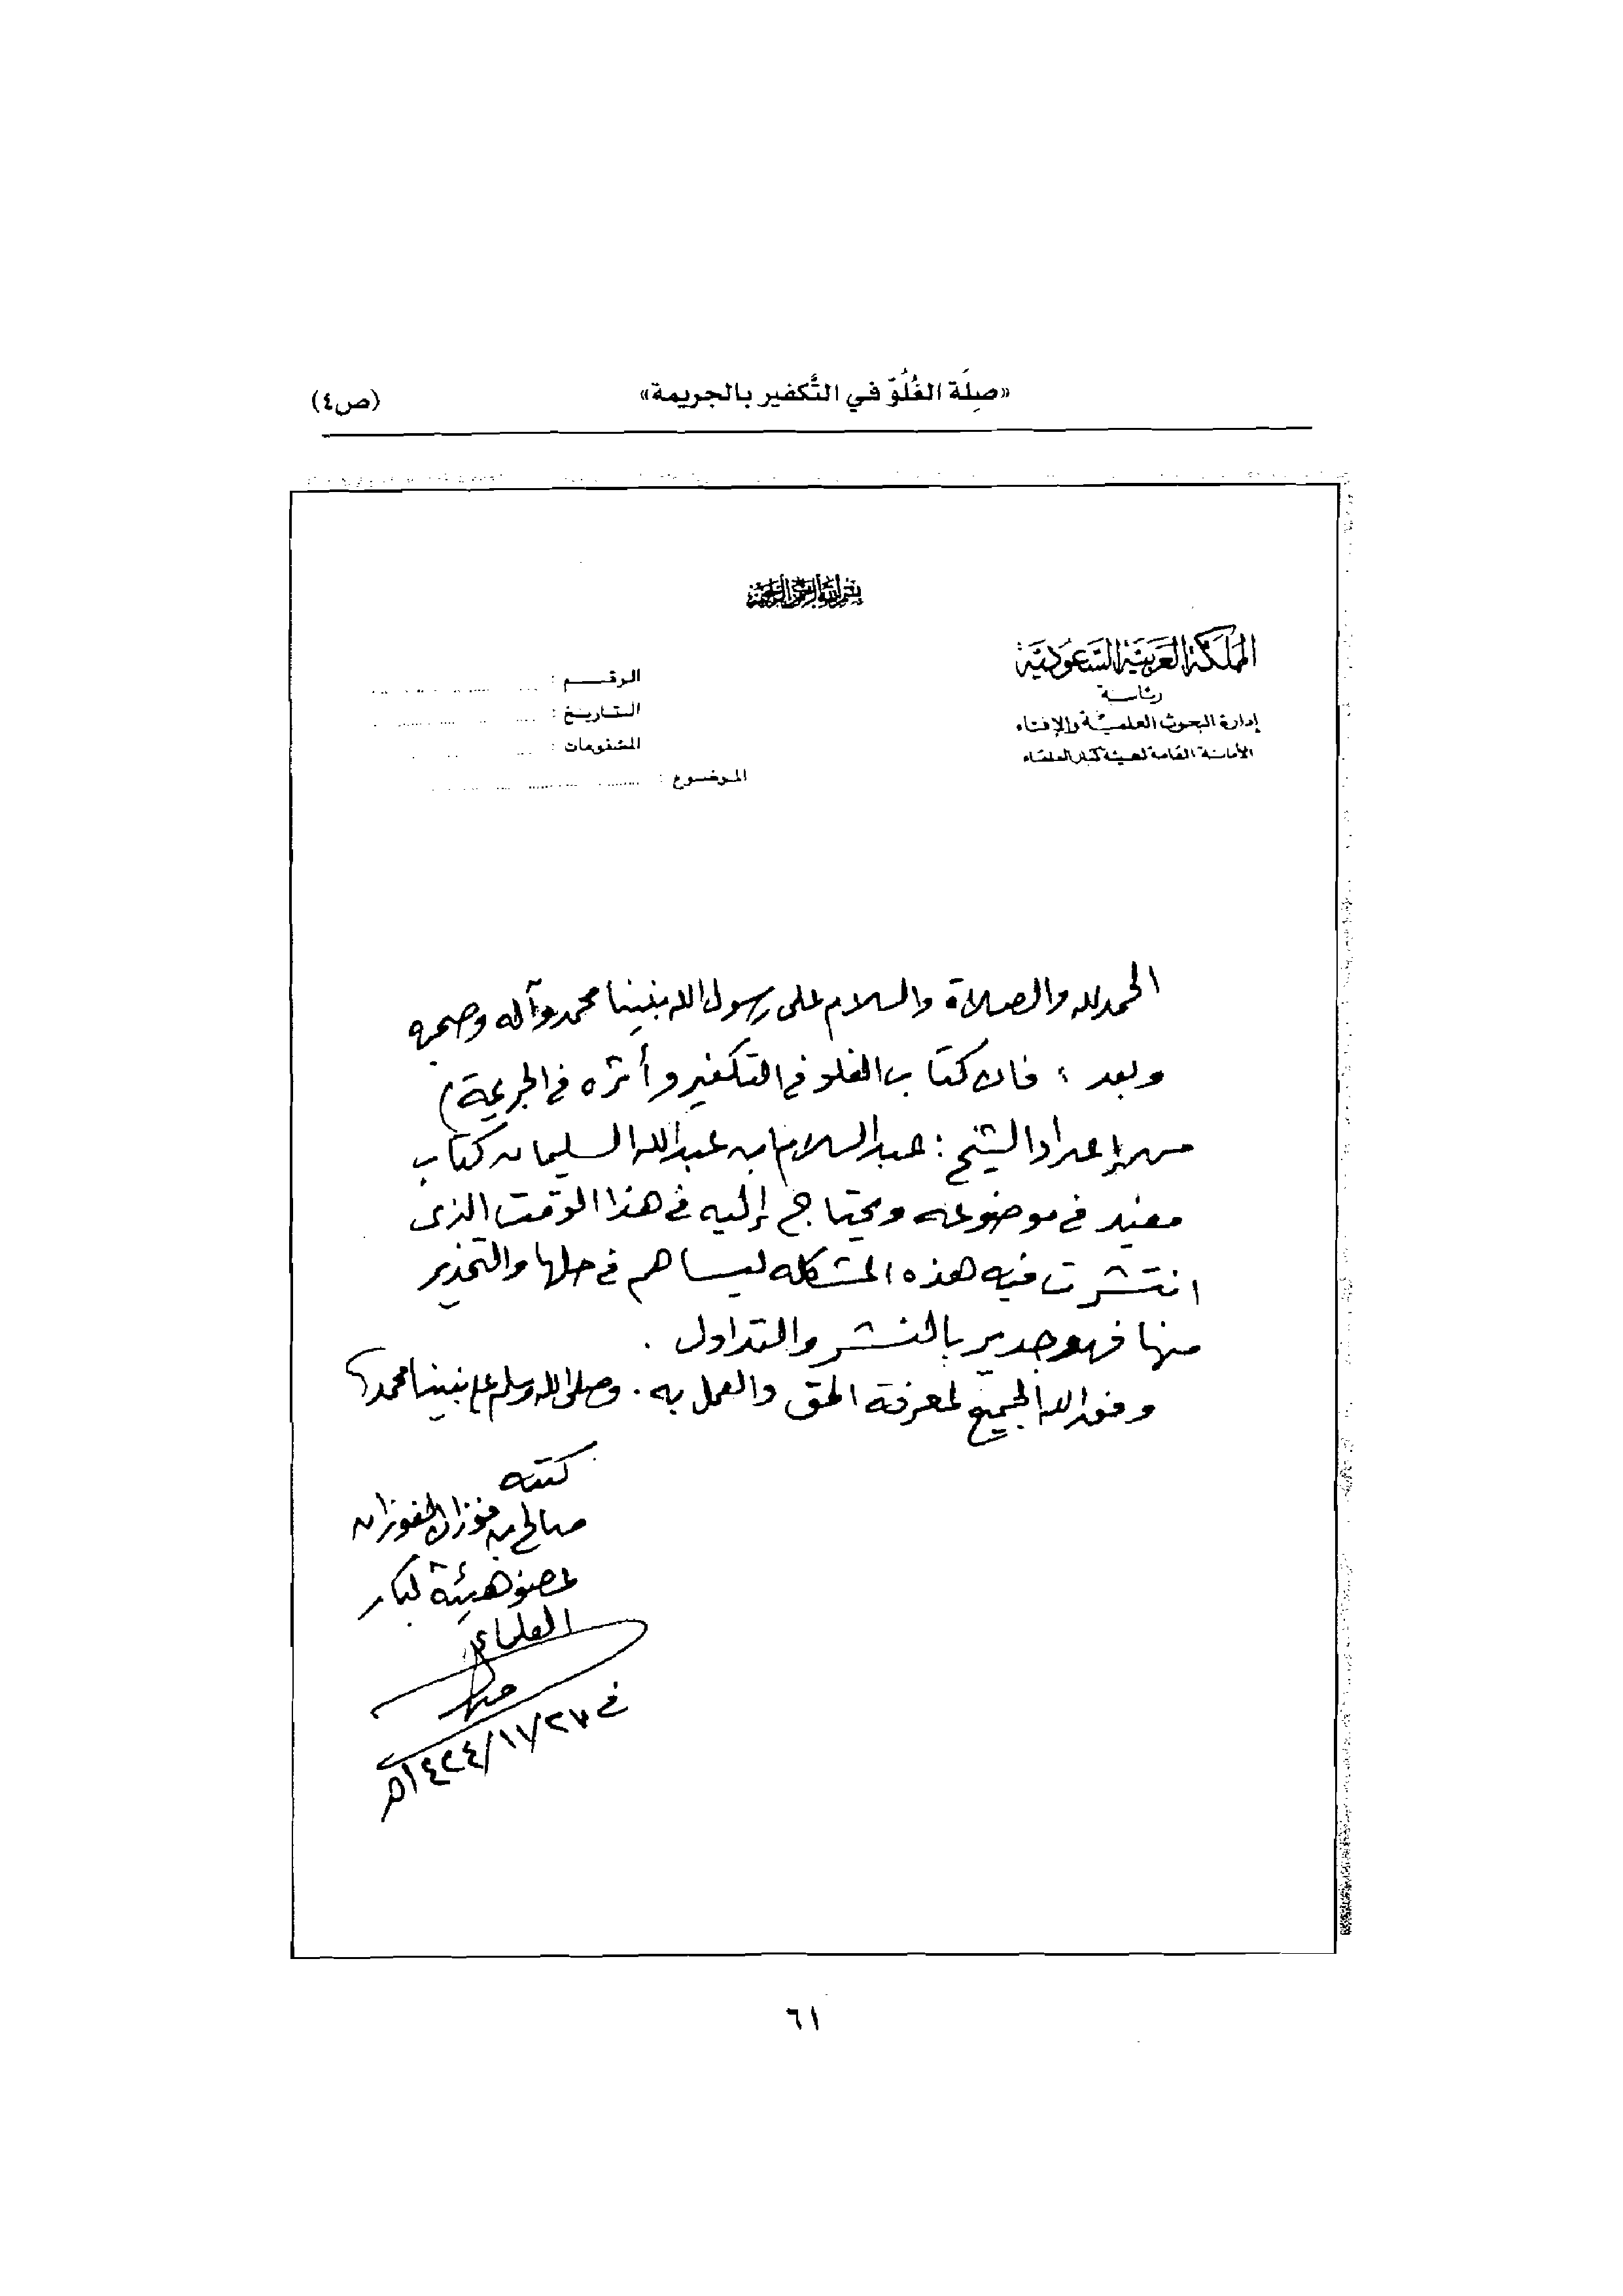 «صِلَة الغُلُوّ في التَّكفير بالجريمة»
(ص٤)
بسم الله الرحمن الرحيم
المملكة العربية السعودية
رئاسة
إدارة البحوث العلمية والإفتاء
الأمانة العامة لهيئة كبار العلماء
الرقم :
التاريخ :
المشفوعات :
الموضوع :
الحمد لله والصلاة والسلام على رسول الله نبينا محمد وآله وصحبه
وبعد : فان كتاب الغلو في التكفير وأثره في الجريمة)
من إعداد الشيخ : عبد السلام بن عبد الله السليمان كتاب
مفيد في موضوعه ويحتاج إليه في هذا الوقت الذى
انتشرت فيه هذه المشكله ليساهم في حلها والتحذير
منها فهو جدير بالنشر والتداول .
وفق الله الجميع لمعرفة الحق والعمل به . وصلى الله وسلم على نبينا محمد
كتبه
صالح بن فوزان الفوزان
عضو هيئة كبار
العلماء
في ١٤٢٤/١١/٢٧هـ
٦١